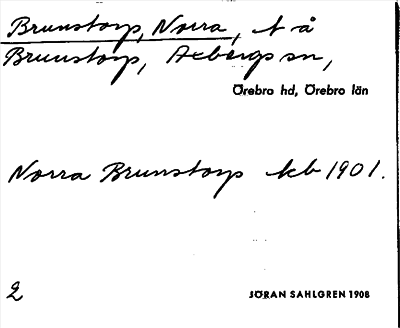 Brunstorp, Norra, t å
Brunstorp, Axbergs sn,
Örebro hd, Örebro län
Norra Brunstorp kb 1901.
JÖRAN SAHLGREN 1908